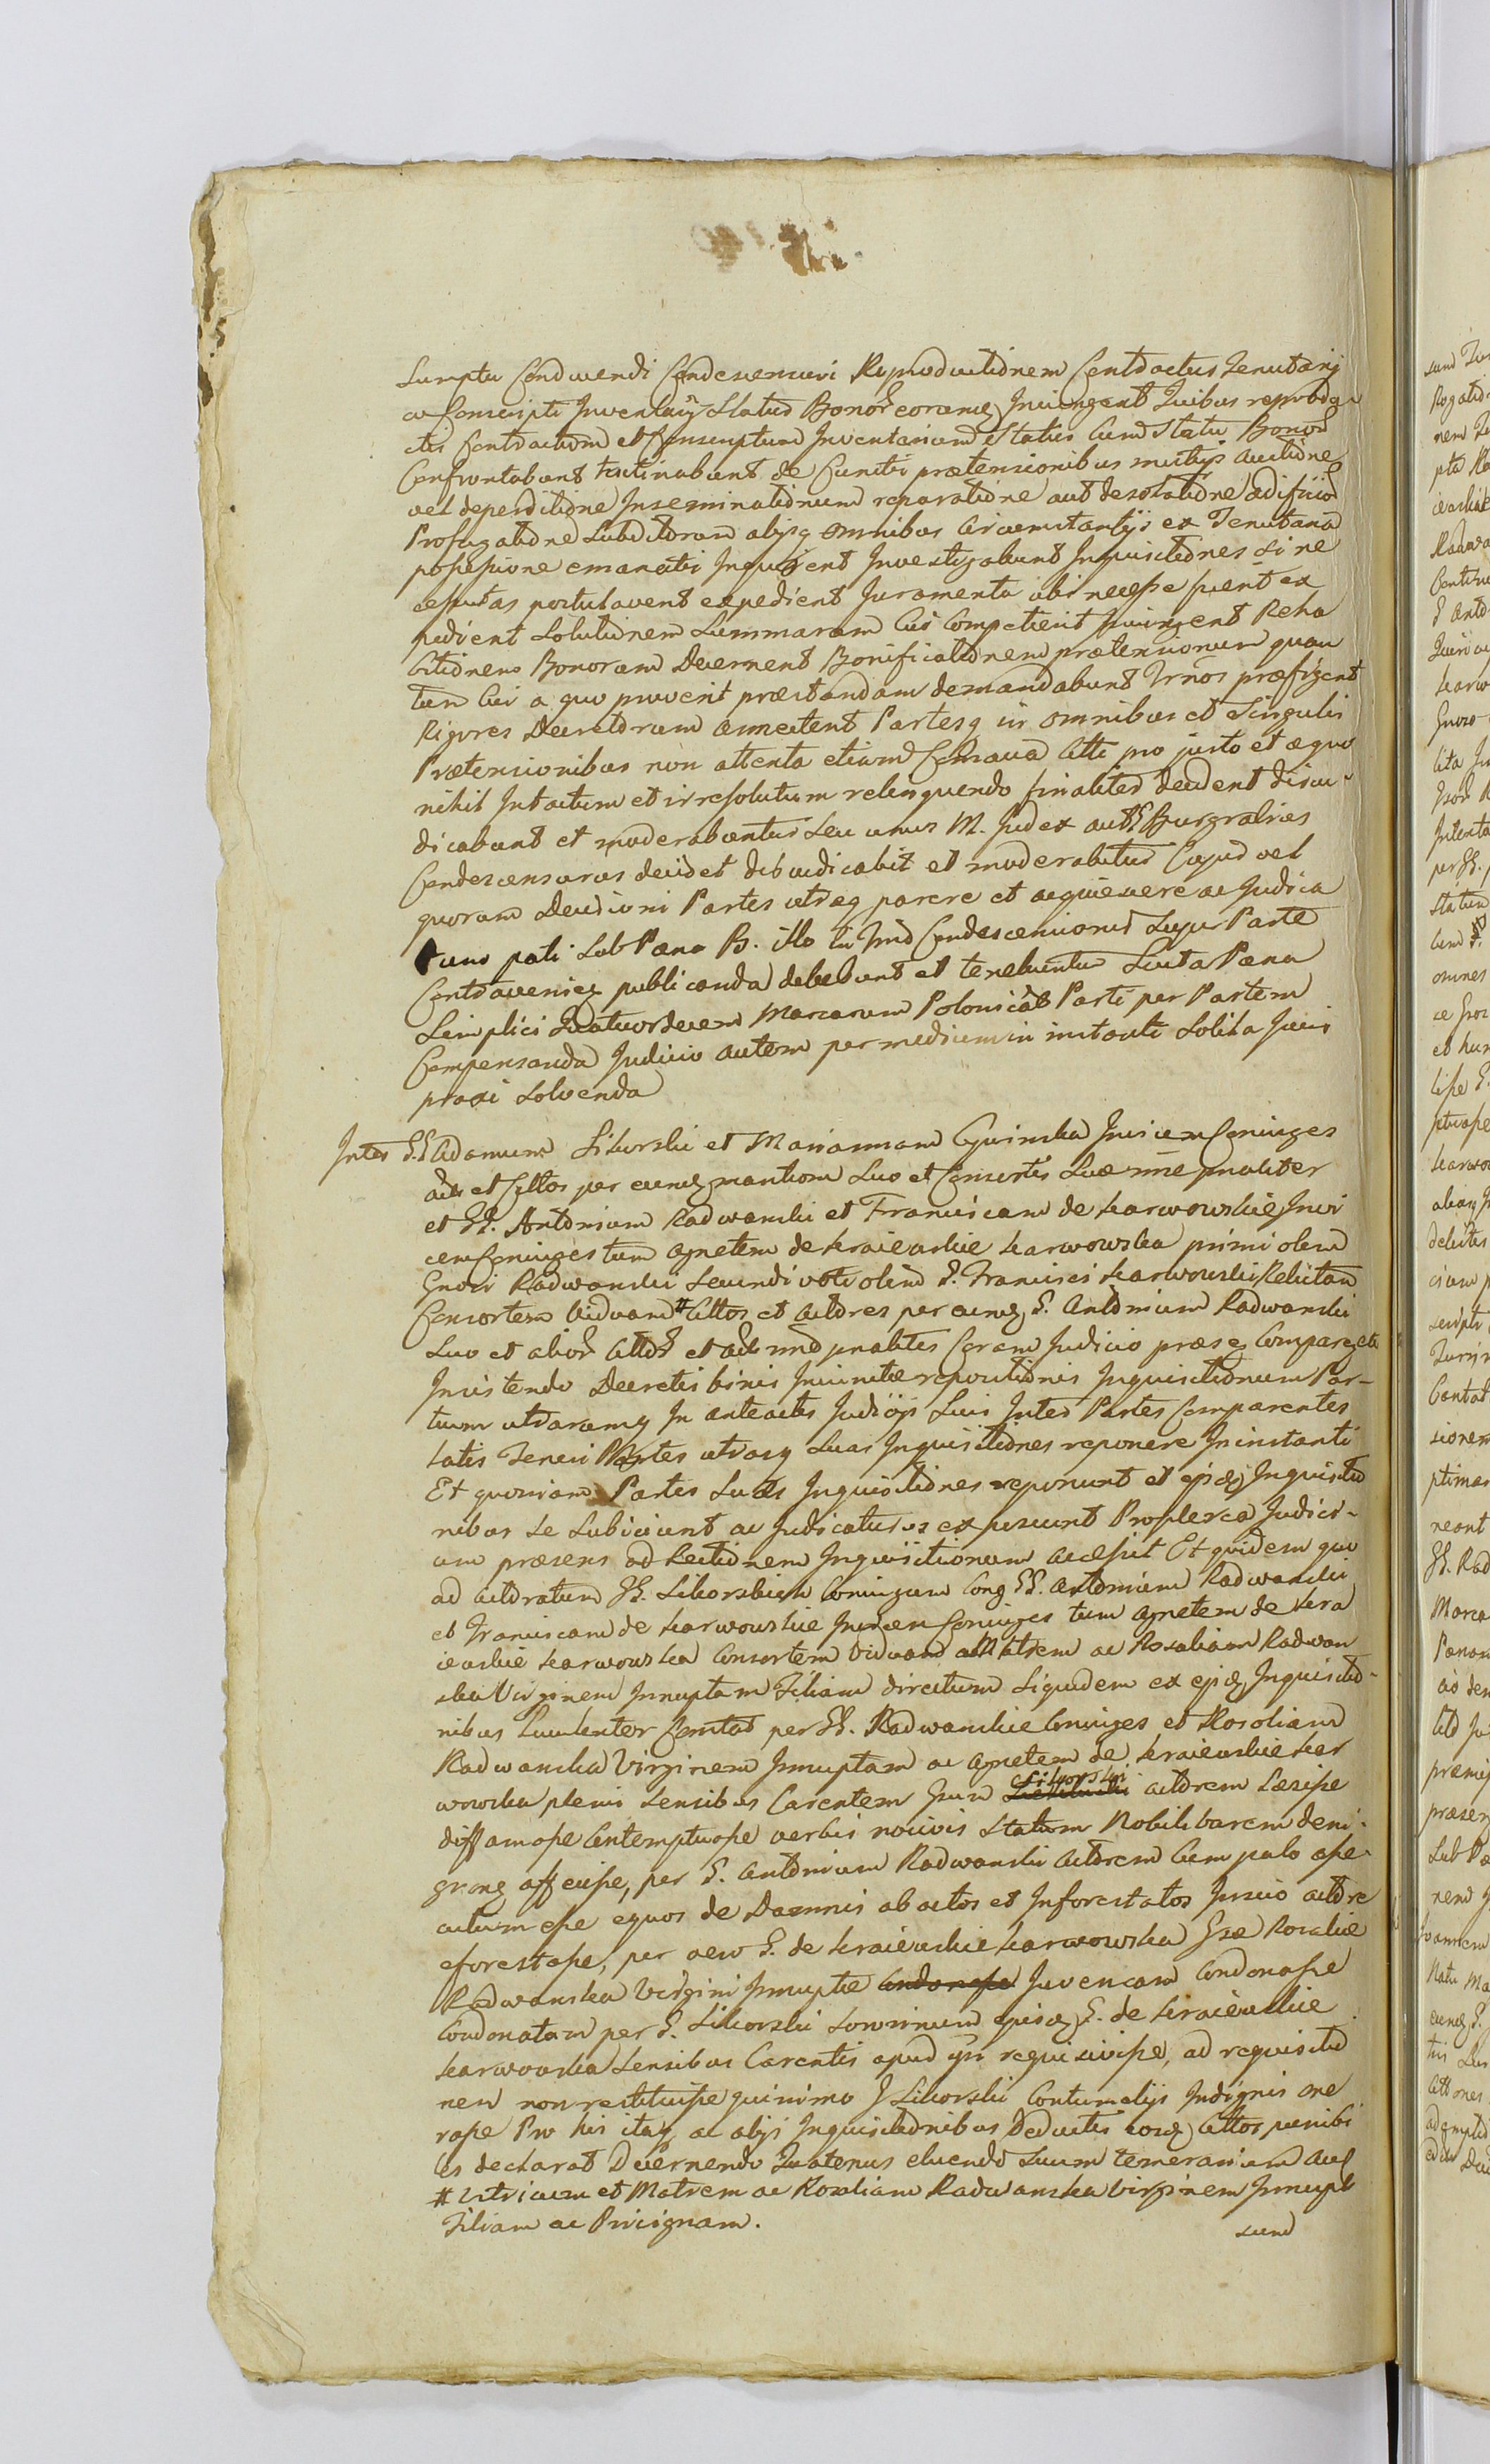 Sumptu Conducendi Condescensuri Reproductionem Contractus Tenutarij
ac Conscripti Inventarij Status Bonor eorumq Iniungent Quibus reprodu
ctis Contractum et Conscriptum Inventarium Status Cum Statu Bonor
Confrontabunt de Cunctis prætensionibus mutuis auctione
vel deperditione Inseminationum reparatione aut desolatione ædificior
Profugatione Subditorum alijsq omnibus Circumstantijs ex Tenutaria
possessione emanatis Inquirent Investigabunt Inquisitiones si ne
cessitas postulaverit expedient Iuramenta ubi necesse fuerit ex
pedient Solutionem Summarum Cui Competierit Iniungent Reha
bitionem Bonorum Decernent Bonificationem prætensionum quan
tum Cui a quo provenerit præstandam demandabunt Trnos præfigent
Rigores Decretorum annectent Partesq in omnibus et Singulis
Prætensionibus non attenta etiam Contumacia Citti pro justo et æquo
nihil Intactum et irresolutum relinquendo finaliter decident diiu-
dicabunt et moderabuntur Seu unus M. Judex aut G Burgrabius
Condescensurus decidet diiudicabit et moderabitur Cujus vel
quorum Decisioni Partes utræq parere et acquiescere ac Judica
tum pati Sub Pæna B. illo in Trnô Condescensionis Super Parte
Contraveniente publicanda debebunt et tenebuntur Luita Pæna
Simplici Quatuordecem Marcarum Polonical Parti per Partem
Compensanda Judicio autem per medium in instanti Solita Juris
praxi Solvenda
Inter GG Adamum Sikorski et Mariannam Invicem Coniuges
Acts et Cittos per eumq maritum Suo et Consortis Suæ nne pnaliter
et GG. Antonium Radwanski et Franciscam de Karwowskie Invi
cem Coniuges tum Agnetem de Kraiewskie Karwowska primi olim
Gnosi Radwanski Secundi voti olim G. Francisci Karwowski Relictam
Consortem Viduam # Cittos et Actores per eumq G. Antonium Radwanski
Suo et alior Cittor et Act nnô pnaliter Coram Judicio præs Comparentes
Insistendo Decretis binis Iniunctæ repositionis Inquisitionum Par-
tium utrarumq In anteactis Judicijs Suis Inter Partes Comparentes
latis Teneri Partes utrasq Suas Inquisitiones reponere In instanti
Et quoniam Partes Suas Inquisitiones reponunt et ejsdq Inquisitio
nibus Se Subiiciunt ac Judicaturus exposcunt Propterea Judici-
um præsens ad Lectionem Inquisitionum accessit Et quidem quo
ad Actoratum GG. Sikorskich Coniugum Cong GG. Antonium Radwanski
et Franciscam de Karwowskie Invicem Coniuges tum Agnetem de Kra
iewskie Karwowska Consortem Viduam Matrem ac Rosaliam Radwan
ska Virginem Innuptam Filiam directum Siquidem ex ejsdq Inquisitio-
nibus Luculenter Constat per GG. Radwanskie Coniuges et Rosaliam
Radwanska Virginem Innuptam ac Agnetem de Kraiewskie Kar
wowska plenis Sensibus Carentem Gnum Sikorski Actorem Læsisse
diffamasse Contempsisse verbis nocivis Statum Nobilitarem deni-
granq affecisse, per G. Antonium Radwanski Actorem Cum palo asse-
cutum esse equos de Damnis abactos et Inforestatos Invito Actore
eforestasse, per aevo G. de Kraiewskie Karwowska Gsæ Rosaliæ
Radwanska Virgini Innuptæ Condonasse Juvencam Condonasse
Condonatam per G. Sikorski Sororinum ejusdq G. de Kraiewskie
Karwowska Sensibus Carentis apud ipn requisivisse, ad requisitio
nem non restituisse quinimo G Sikorski Contumelijs Indignis one
rasse Pro his itaq ac alijs Inquisitionibus Deductis eosdq Cittos punibi
les declarat Decernendo Quatenus eluendo Suum temerarium aus
# Vitricum et Matrem ac Rosaliam Radwanska Virginem Innupt
Filiam ac Privignam.
sum